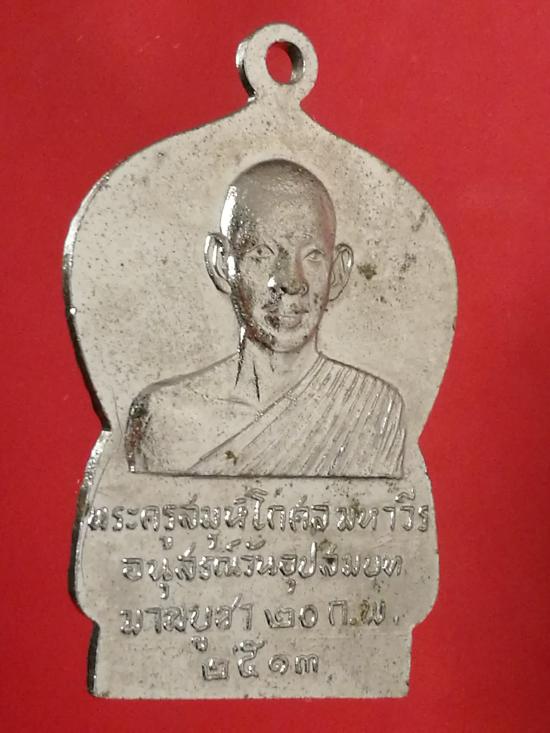 พระครูสมุห์โกศล มหาวีร
อนุสรณ์วันอุปสมบท
มาฆบูชา ๒๐ ก.พ.
๒๕๑๓